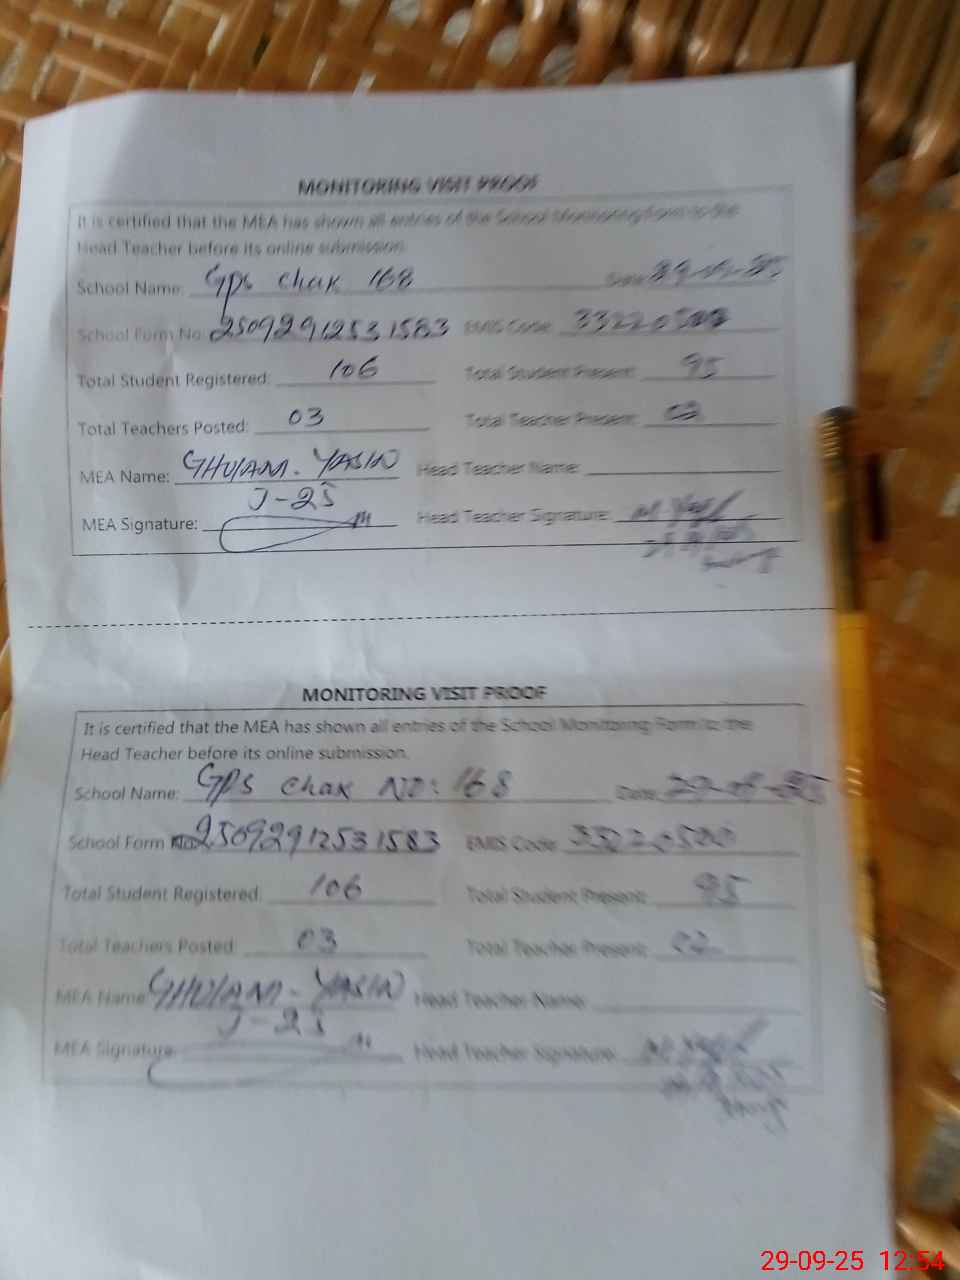 MONITORING VISIT PROOF
It is certified that the MEA has shown all entries of the School Monitoring Form to the
Head Teacher before its online submission.
School Name: Gps Chak 168 Date: 29-09-25
School Form No: 25092912531583 EMIS Code:
Total Student Registered: 106 Total Student Present: 95
Total Teachers Posted: 03 Total Teacher Present: 02
MEA Name: GHULAM. YASIN Head Teacher Name:
J-25
MEA Signature: Head Teacher Signature:
MONITORING VISIT PROOF
It is certified that the MEA has shown all entries of the School Monitoring Form to the
Head Teacher before its online submission.
School Name: GPS Chak NO: 168 Date: 29-09-25
School Form No: 25092912531583 EMIS Code:
Total Student Registered: 106 Total Student Present: 95
Total Teachers Posted: 03 Total Teacher Present: 02
MEA Name: GHULAM - YASIN Head Teacher Name:
J-25
MEA Signature: Head Teacher Signature:
29-09-25 12:54